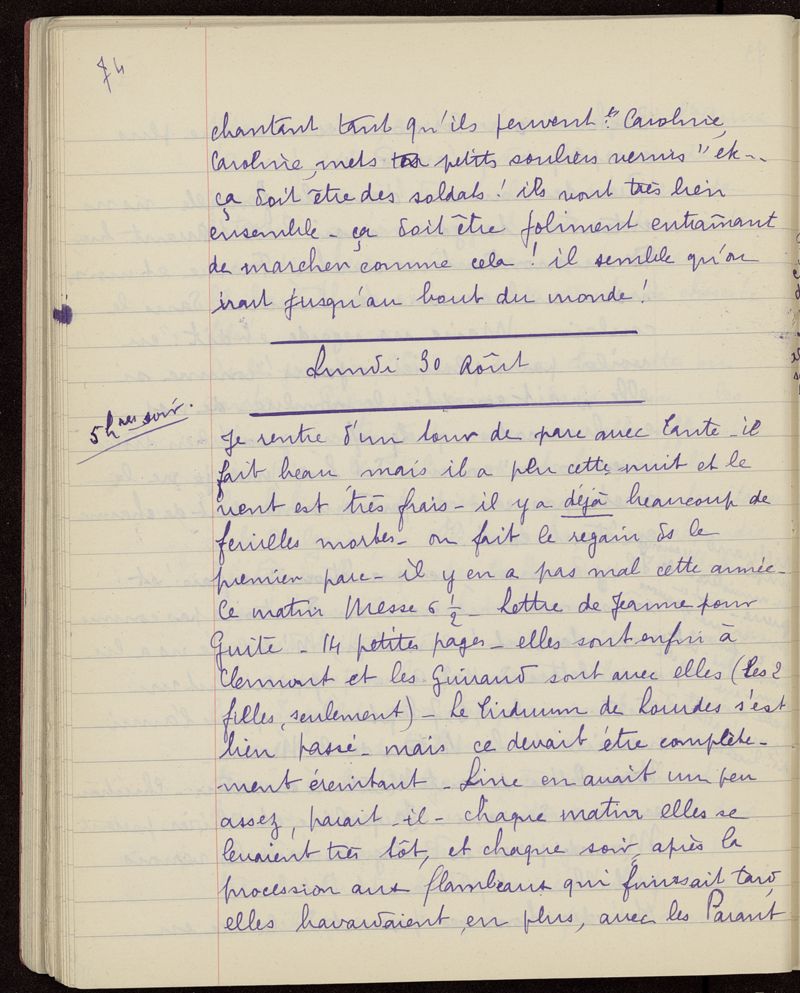 74
chantant tant qu'ils peuvent : "Caroline,
Caroline, mets tes petits souliers vernis" etc..
ça doit être des soldats ! ils vont très bien
ensemble - ça doit être joliment entraînant
de marcher comme cela ! il semble qu'on
irait jusqu'au bout du monde !
Lundi 30 Août
5 hres soir.
Je rentre d'un tour de parc avec Tante - il
fait beau mais il a plu cette nuit et le
vent est très frais - il y a déjà beaucoup de
feuilles mortes - on fait le regain ds le
premier parc - il y en a pas mal cette année -
Ce matin Messe 6 1/2 - Lettre de Jeanne pour
Guite - 14 petites pages - elles sont enfin à
Clermont et les Guiraud sont avec elles (les 2
filles, seulement) - Le Triduum de Lourdes s'est
bien passé - mais ce devait être complète-
ment éreintant - Line en avait un peu
assez, parait-il - chaque matin elles se
levaient très tôt, et chaque soir, après la
procession aux flambeaux qui finissait tard,
elles bavardaient, en plus, avec les Parant